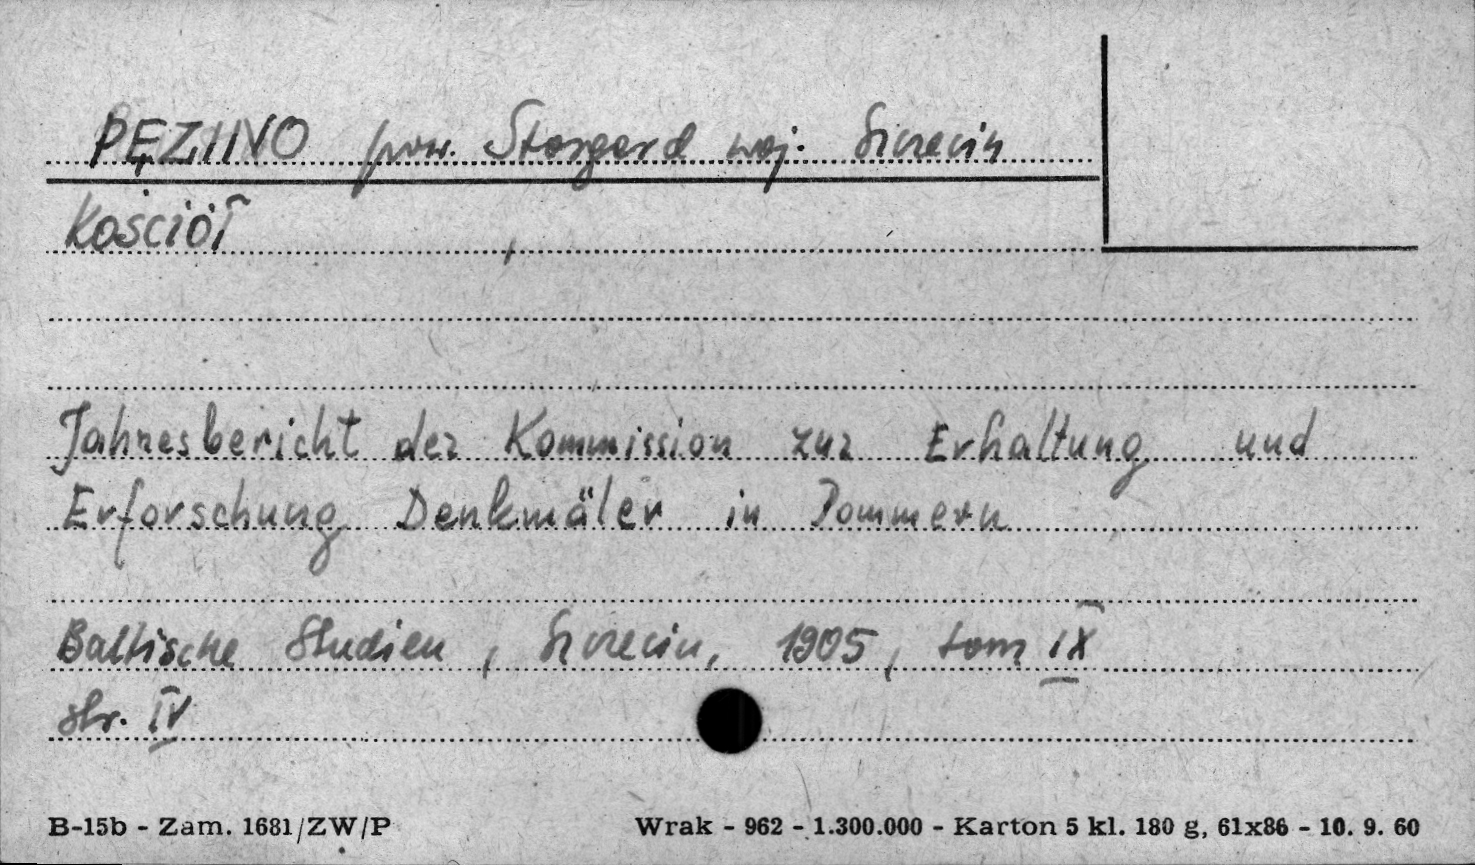 PĘZINO pow. Stargard woj. Szczecin
Kościół
Jahresbericht der Kommission zur Erhaltung und
Erforschung Denkmäler in Pommern
Baltische Studien, Szczecin, 1905, tom IX
str. IV
B-15b - Zam. 1681/ZW/P
Wrak - 962 - 1.300.000 - Karton 5 kl. 180 g, 61x86 - 10. 9. 60